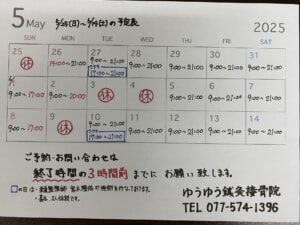 5 May 5/25(日)～6/14(土)の予定表 2025
SUN MON TUE WED THU FRI SAT
25 26 27 28 29 30 31
休 14:00～21:00 9:00～21:00 9:00～21:00 9:00～21:00 9:00～21:00 9:00～21:00
17:00～21:00
1 2 3 4 5 6 7
9:00～17:00 9:00～20:00 休 休 9:00～21:00 9:00～21:00 9:00～21:00
8 9 10 11 12 13 14
9:00～17:00 休 9:00～21:00 9:00～21:00 9:00～21:00 9:00～21:00 9:00～21:00
17:00～21:00
ご予約・お問い合わせは
終了時間の3時間前までにお願い致します。
の日は
ゆうゆう鍼灸接骨院
TEL 077-574-1396